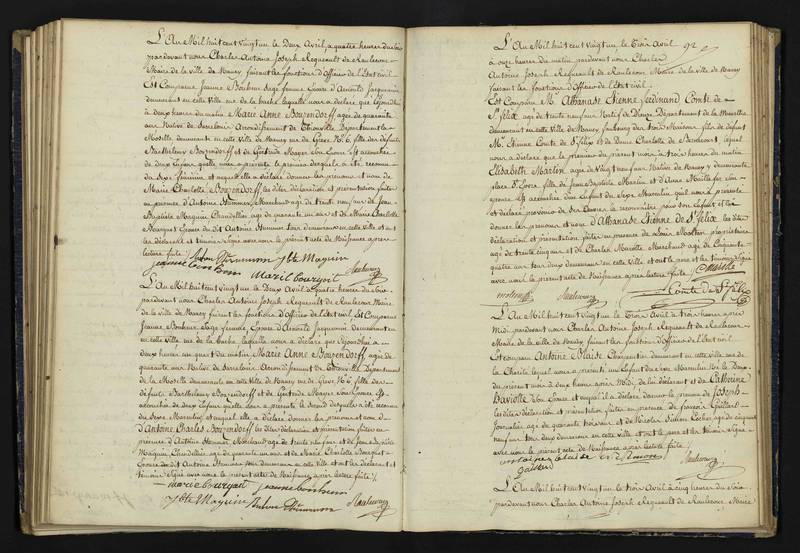 L'An Mil huit cent vingt un le Deux Avril, à quatre heures du soir
pardevant nous Charles Antoine Joseph Regneault de Raulecour
Maire de la ville de Nancy faisant les fonctions d'Officier de l'Etat civil
Est Comparue Jeanne Bonheur Sage femme Epouse d'Arnould Jacquemin
demeurant en cette Ville rue de la hache laquelle nous a déclaré que
à deux heures du matin Marie Anne Bouzendorff agée de quarante
ans Native de Sarrelouis Arrondissement de Thionville Département de la
Moselle demeurante en cette Ville de Nancy rue de Grève N. 6, fille des défunts
Barthelemy Bouzendorff et de Gertrude Mayer son Epouse est accouchée
de deux Enfans qu'elle nous a présenté le premier desquels a été reconnu
du Sexe féminin et auquel elle a déclaré donner les prénoms et nom de
Marie Charlotte Bouzendorff, les dites déclaration et présentation faites
en présence d'Antoine Hummer, Marchand agé de trente neuf ans de Jean
Baptiste Maguin Chandellier agé de quarante un ans et de Marie Charlotte
Bourgeot Epouse du dit Antoine Hummer tous demeurans en cette Ville et ont
les déclarante et témoins Signé avec nous le présent acte de Naissance après
lecture faite /.
jeanne bonheur
Marie Bourgeot
Jbte Maguin
L'An Mil huit cent vingt un le Deux Avril à quatre heures du Soir
pardevant nous Charles Antoine Joseph Regneault de Raulecour Maire
de la Ville de Nancy faisant les fonctions d'Officier de l'Etat civil, Est Comparue
Jeanne Bonheur, Sage femme, Epouse d'Arnould Jacquemin demeurant en
cette Ville rue de la hache, laquelle nous a déclaré que
deux heures un quart du matin Marie Anne Bouzendorff, agée de
quarante ans Native de Sarrelouis Arrondissement de Thionville Département
de la Moselle demeurante en cette Ville de Nancy rue de Grève N. 6, fille des
défunts Barthelemy Bouzendorff et de Gertrude Mayer son Epouse Est
accouchée de deux Enfans qu'elle nous a présenté le second desquels a été reconnu
du Sexe Masculin, et auquel elle a déclaré donner les prénoms et nom
d'Antoine Charles Bouzendorff, les dites déclaration et présentation faites en
présence d'Antoine Hummer Marchand agé de trente neuf ans et de Jean Baptiste
Maguin Chandellier agé de quarante un ans et de Marie Charlotte Bourgeot
Epouse du dit Antoine Hummer tous demeurans en cette Ville et ont les déclarante et
témoins Signé avec nous le présent acte de Naissance, après lecture faite /.
marie bourgeot jeanne bonheur
Jbte Maguin
92
L'An Mil huit cent vingt un, le Trois Avril
à onze heures du matin pardevant nous Charles
Antoine Joseph Regneault de Raulecour Maire de la ville de Nancy
faisant les fonctions d'Officier de l'Etat civil.
Est Comparu M. Athanase Etienne Ferdinand Comte de
St félix agé de trente neuf ans Natif de Dieuze Département de la Meurthe
demeurant en cette Ville de Nancy, faubourg des trois Maisons fils de défunt
M. Etienne Comte de St félix et de Dame Charlotte de lequel
nous a déclaré que le premier du présent mois à trois heures du matin
Elisabeth Marlin agée de vingt neuf ans Native de Nancy y demeurante
place St Epvre fille de Jean Baptiste Marlin et d'Anne son
Epouse Est accouchée d'un Enfant du Sexe Masculin qu'il nous a présenté
et déclaré provenir de ses Œuvres, le reconnaître pour son Enfant et lui
donner les prénoms et nom d'Athanase Etienne de St félix, les dites
déclaration et présentation faites en présence de Louis Propriétaire
agé de trente cinq ans et de Charles Marchand agé de Cinquante
quatre ans tous deux demeurans en cette Ville et ont le père et les témoins Signé
avec nous le présent acte de Naissance après lecture faite /.
Comte de St félix
L'An Mil huit cent vingt un le Trois Avril à trois heures après
Midi pardevant nous Charles Antoine Joseph Regneault de Raulecour
Maire de la Ville de Nancy faisant les fonctions d'Officier de l'Etat civil
Est comparu Antoine Blaise Charpentier demeurant en cette Ville rue de
la Charité lequel nous a présenté un Enfant du Sexe Masculin Né le Deux
du présent mois à deux heures après Midi, de lui déclarant et de Catherine
Daviotte Son Epouse et auquel il a déclaré donner le prénom de Joseph
les dites déclaration et présentation faites en présence de
Journalier agé de quarante trois ans et de Nicolas Cocher agé de cinquante
neuf ans tous deux demeurans en cette Ville et ont le père et les témoins Signé
avec nous le présent acte de Naissance, après lecture faite /.
antoine blaise
L'An Mil huit cent vingt un le trois Avril à cinq heures du Soir
pardevant nous Charles Antoine Joseph Regneault de Raulecour Maire